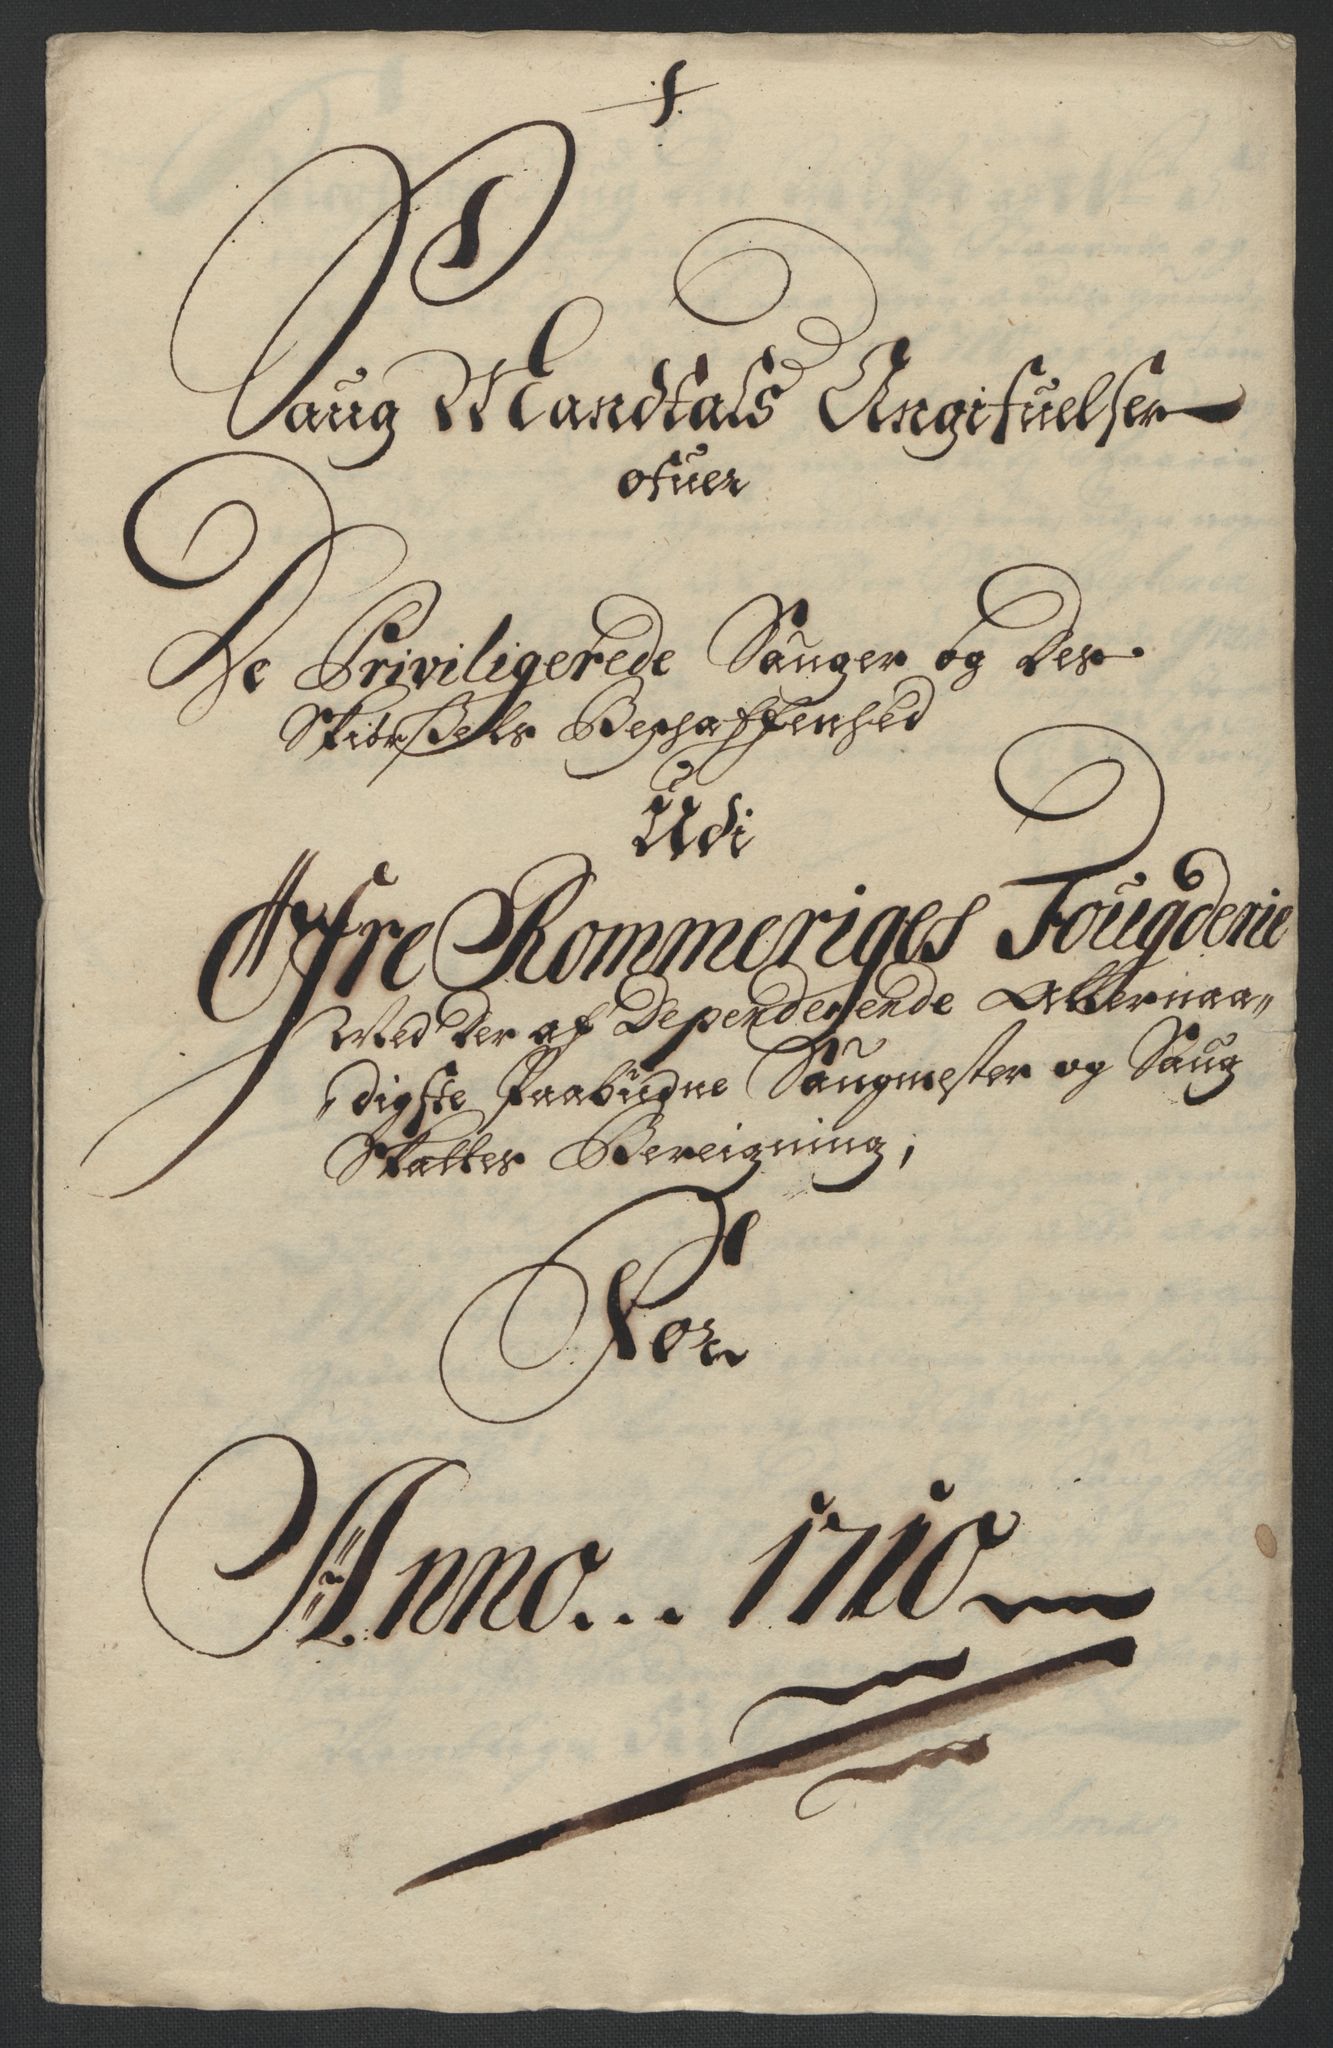 Saug Mandtals Angifuelser
ofuer
De Priviligerede Sauger og Des
Skiørssels Beschaffenhed
Udi
Øfre Rommeriges Fougderie
Med der af Dependerende Allernaa„
„digste Paabudne Saugmester og Saug
Skattes Bereigning,
For
Anno... 1710